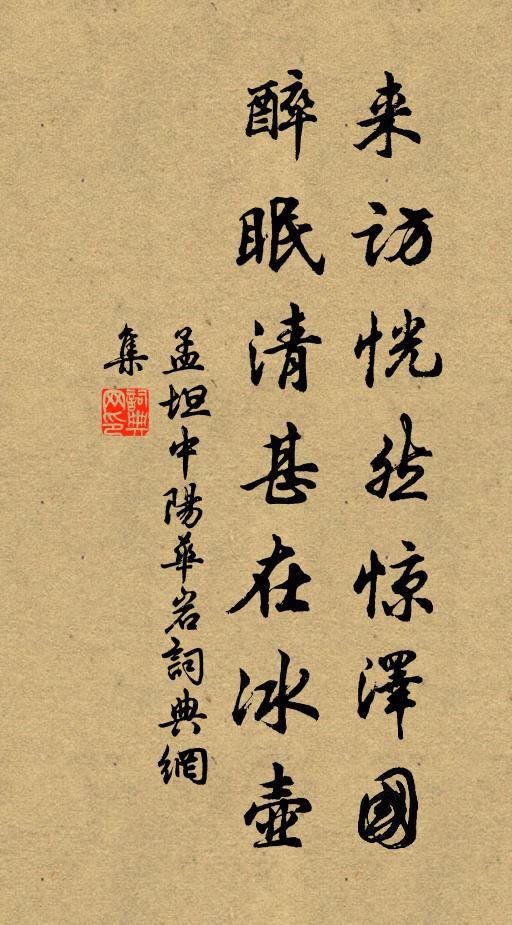 来访恍然惊澤國
醉眠清甚在冰壺
孟坦中陽華岩詞典網
集
詞典
网印